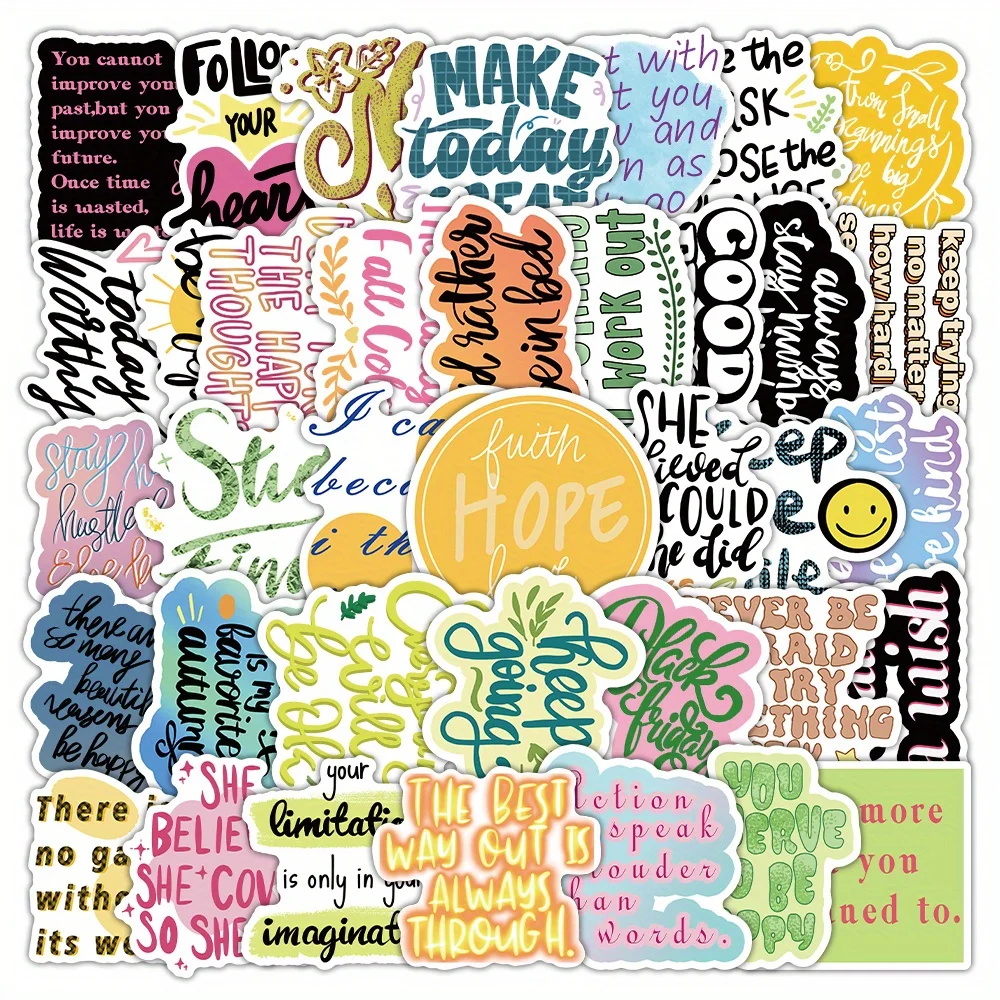 You cannot
improve you
past,but you
improve yo
future.
Once time
is wasted,
life is w
FOLLO
YOUR
heart
MAKE
today
GREAT
t with
t you
and
n as
e the
ASK
OSE the
From Small
beginnings
big
endings
today
Worthy
THE HAP
THOUGHT
Fall Col
d rather
be in bed
work out
GOOD
always
stay humb
keep trying
no matter
how hard
se
stay h
hustle
Else b
Stu
I ca
beca
i th
faith
HOPE
love
SHE
lieved
COULD
he did
ep
be kind
there ar
so many
beautif
reasons
be happ
is my
favorite
autumn
Everyt
will
be Ok
keep
going
Black
friday
EVER BE
RAID
TRY
THING
wish
There i
no ga
witho
its wo
SHE
BELIE
SHE COU
SO SHE
your
limitatio
is only in your
imaginat
THE BEST
WAY OUT IS
ALWAYS
THROUGH.
Action
speak
louder
han
words.
YOU
ERVE
O BE
PPY
more
you
ned to.